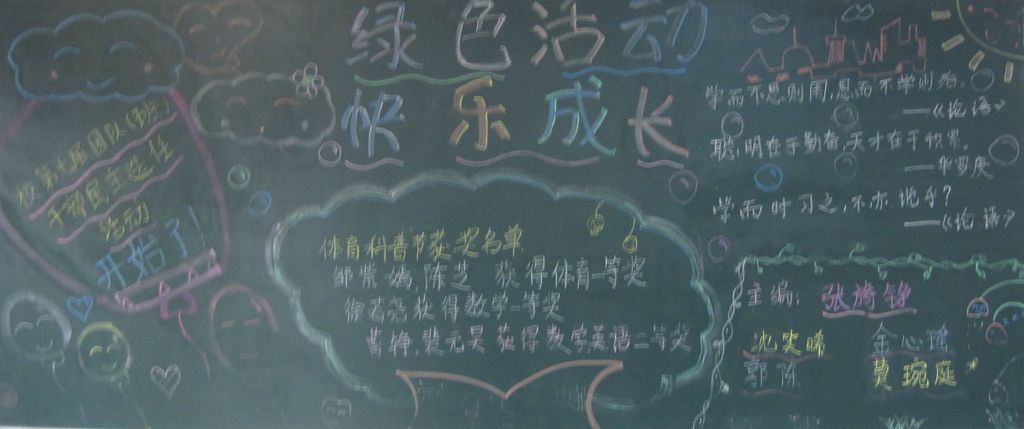 绿色活动
快乐成长
校第七届团队(秋)
干部民主选任
活动
开始了!
体育科普节获奖名单
邹紫嫣,陈芝 获得体育一等奖
获得数学一等奖
曹铮,裴元昊 获得数学英语二等奖
学而不思则罔,思而不学则殆。
——《论语》
聪明在于勤奋,天才在于积累。
——华罗庚
学而时习之,不亦说乎?
——《论语》
主编:
沈奕晞 金心
郭陈 黄琬庭